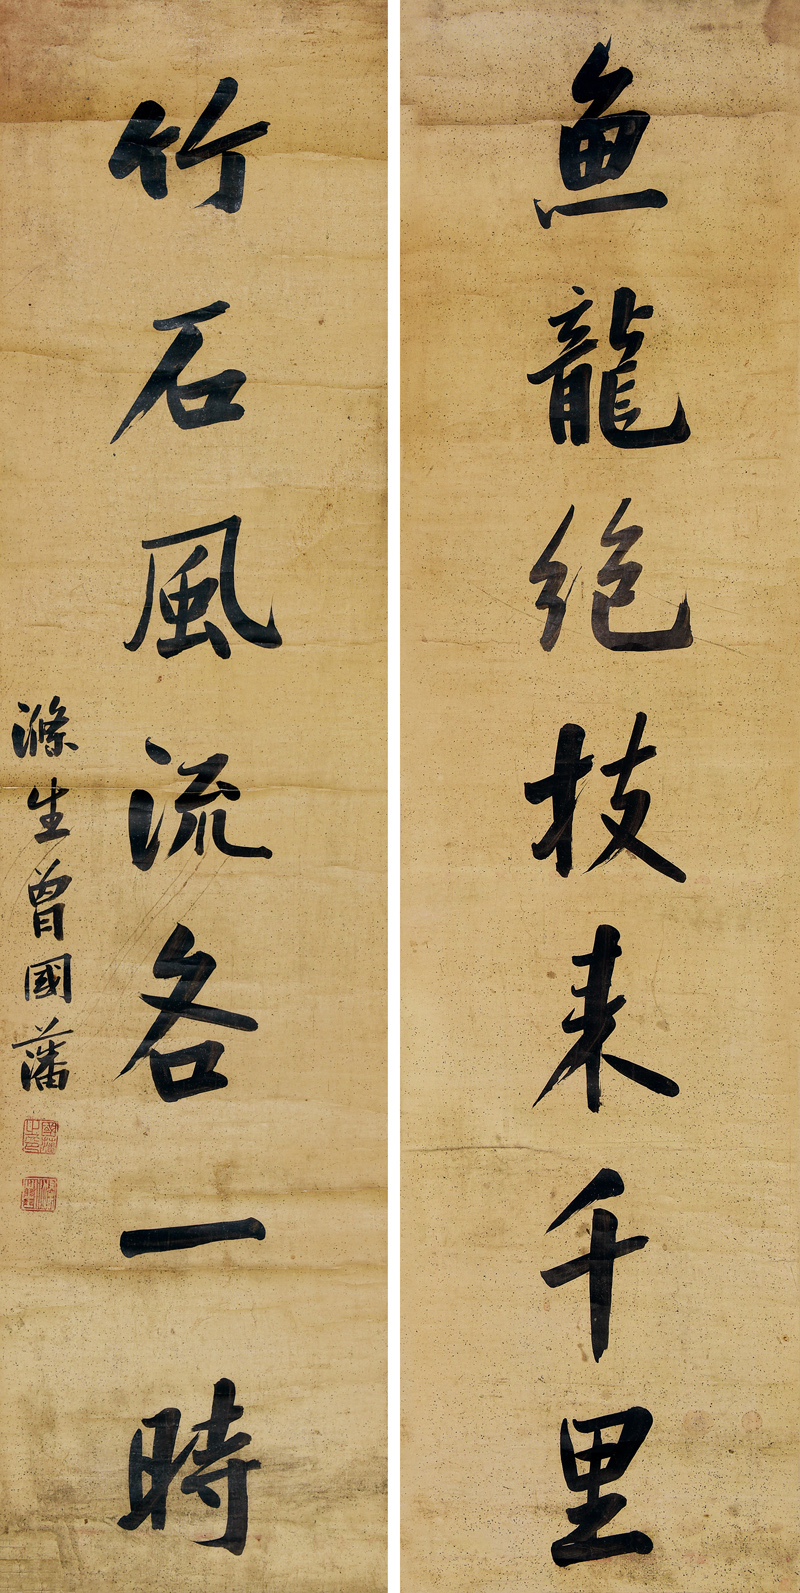 魚龍絕技來千里
竹石風流各一時
滌生曾國藩